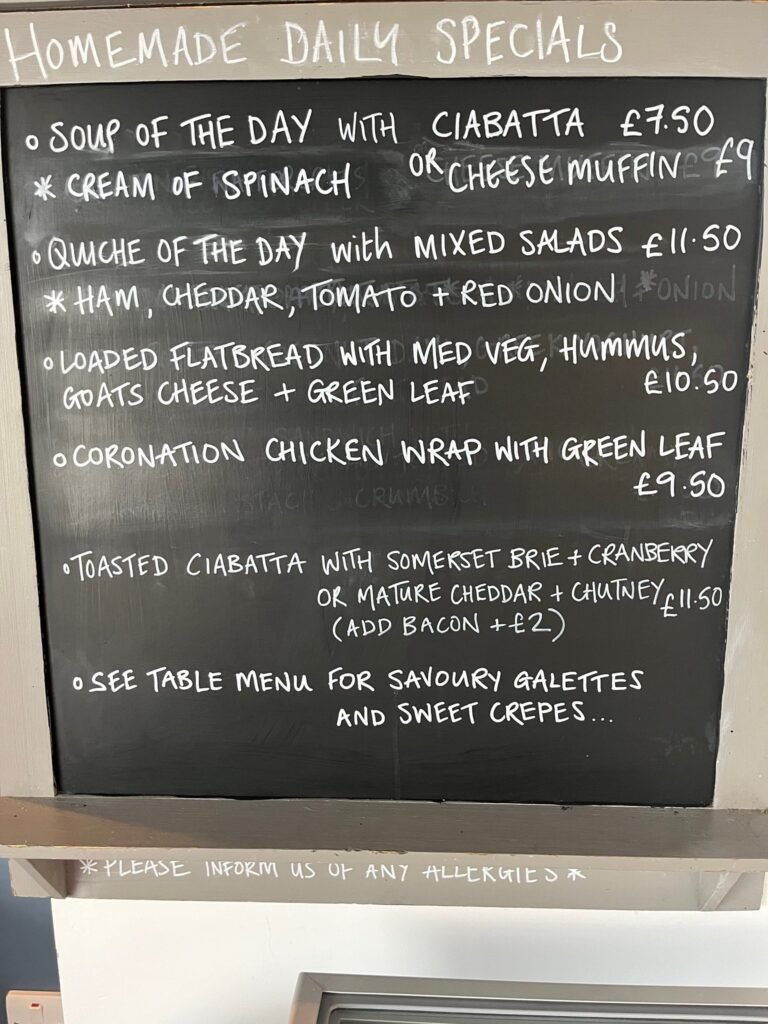 HOMEMADE DAILY SPECIALS
o SOUP OF THE DAY WITH CIABATTA £7.50
* CREAM OF SPINACH OR CHEESE MUFFIN £9
o QUICHE OF THE DAY with MIXED SALADS £11.50
* HAM, CHEDDAR, TOMATO + RED ONION
o LOADED FLATBREAD WITH MED VEG, HUMMUS,
GOATS CHEESE + GREEN LEAF £10.50
o CORONATION CHICKEN WRAP WITH GREEN LEAF
£9.50
o TOASTED CIABATTA WITH SOMERSET BRIE + CRANBERRY
OR MATURE CHEDDAR + CHUTNEY £11.50
(ADD BACON +£2)
o SEE TABLE MENU FOR SAVOURY GALETTES
AND SWEET CREPES...
*PLEASE INFORM US OF ANY ALLERGIES*